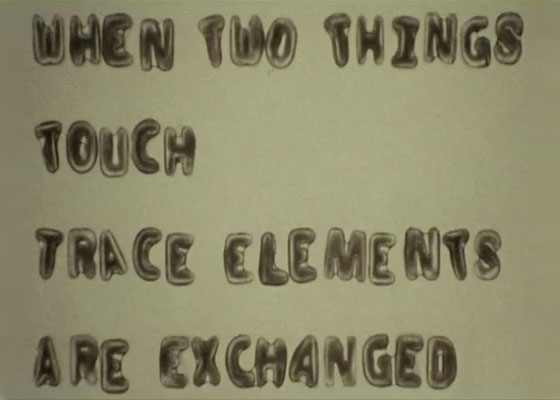 WHEN TWO THINGS
TOUCH
TRACE ELEMENTS
ARE EXCHANGED